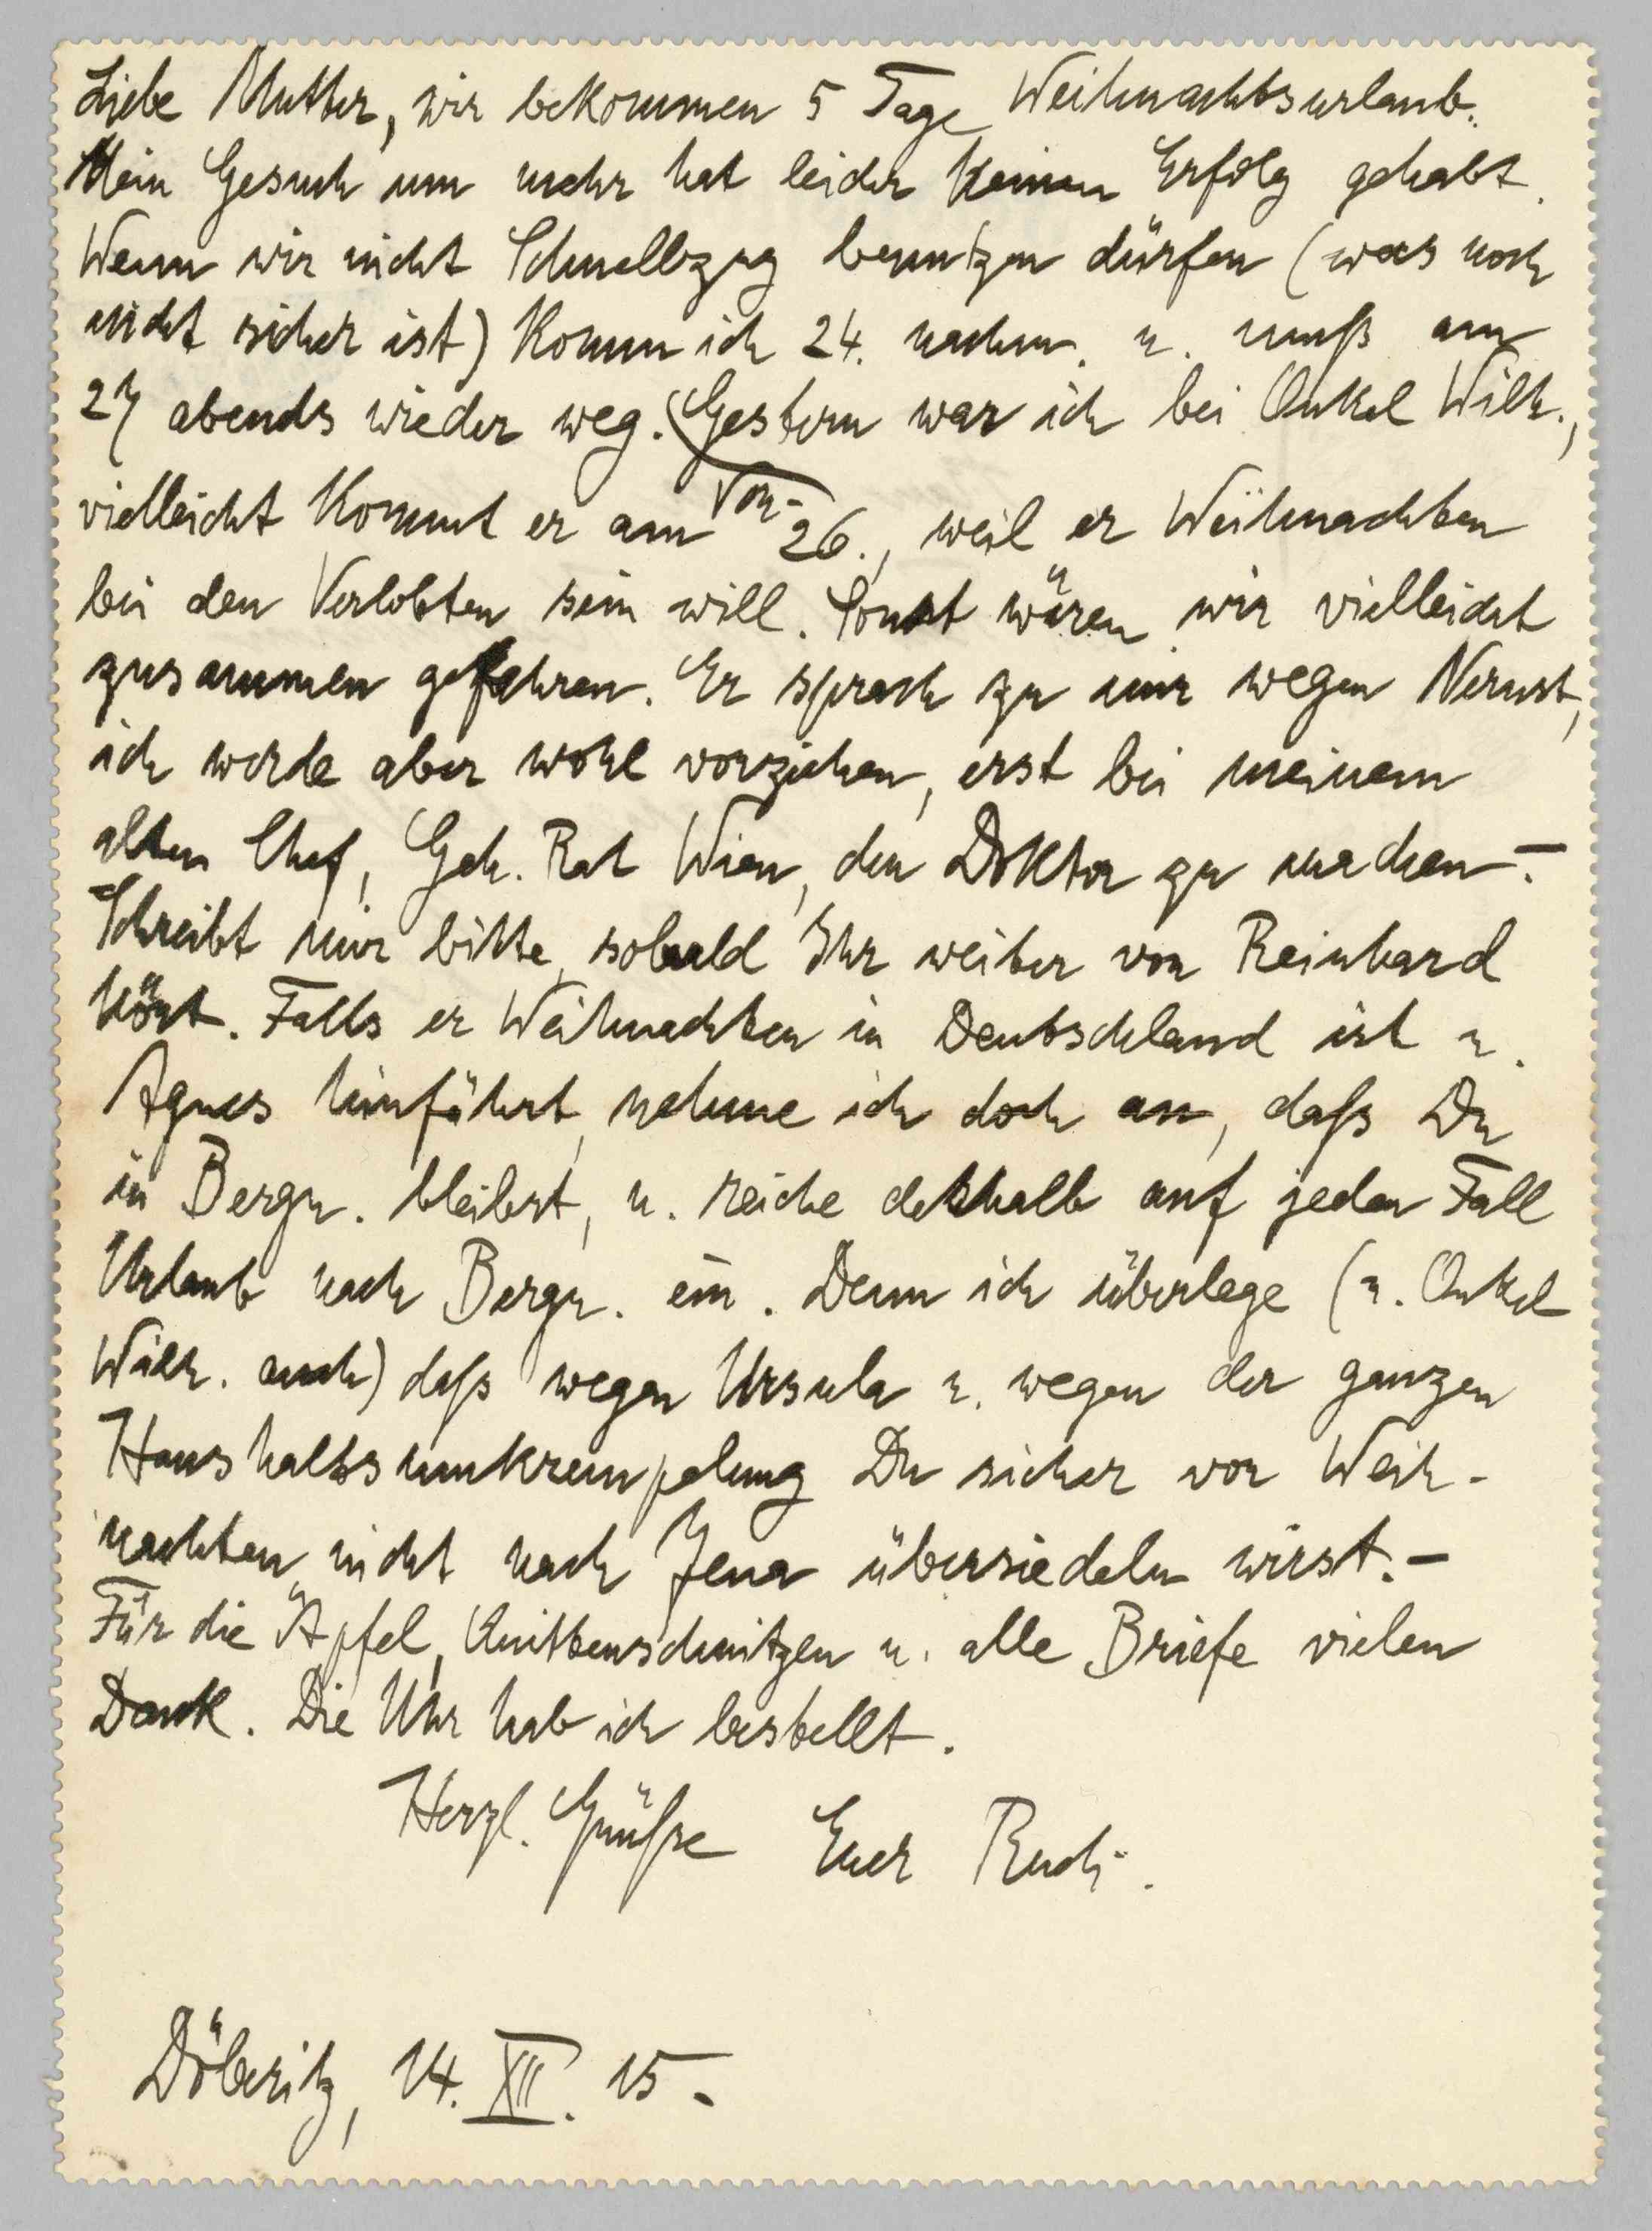 Liebe Mutter, wir bekommen 5 Tage Weihnachtsurlaub.
Mein Gesuch um mehr hat leider keinen Erfolg gehabt.
Wenn wir nicht Schnellzug benutzen dürfen (was noch
nicht sicher ist) komm ich 24. nachm. u. muß am
27 abends wieder weg. Gestern war ich bei Onkel Wilh.,
vielleicht kommt er am 26., weil er Weihnachten
bei den Verlobten sein will. Sonst wären wir vielleicht
zusammen gefahren. Er sprach zu mir wegen Nernst,
ich werde aber wohl vorziehen, erst bei meinem
alten Chef, Geh. Rat Wien, den Doktor zu machen. –
Schreibt mir bitte, sobald Ihr weiter von Reinhard
hört. Falls er Weihnachten in Deutschland ist u.
Agnes hinfährt, nehme ich doch an, daß Du
in Bergz. bleibst, u. reiche deshalb auf jeden Fall
Urlaub nach Bergz. ein. Denn ich überlege (u. Onkel
Wilh. auch) daß wegen Ursula u. wegen der ganzen
Haushaltsumkrempelung Du sicher vor Weih-
nachten nicht nach Jena übersiedeln wirst. –
Für die Äpfel, Quittenschnitzen u. alle Briefe vielen
Dank. Die Uhr hab ich bestellt.
Herzl. Grüße Euer Rudi.
Döberitz, 14. XII. 15.